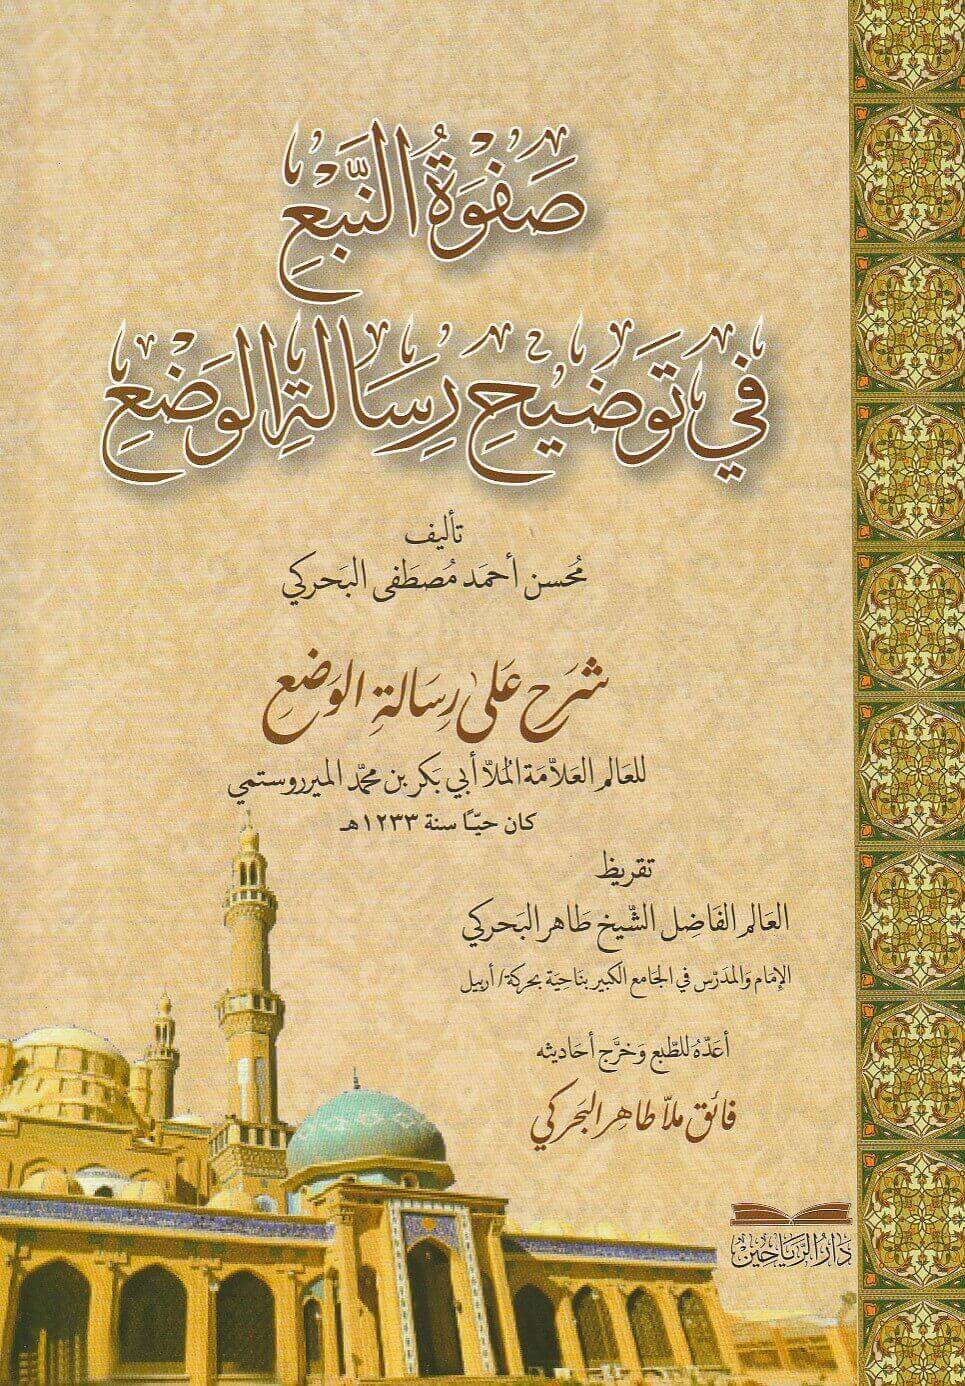 صَفْوَةُ النَّبْعِ
في تَوضيحِ رِسَالَةِ الوَضْعِ
تأليف
مُحسن أحمَد مُصطَفى البَحركي
شَرح عَلى رِسَالَةِ الوَضعِ
للعَالم العَلاّمَة المُلاّ أبي بَكر بن محمّد الميرروستمي
كان حيًّا سنة ١٢٣٣هـ
تقريظ
العَالم الفَاضِل الشَّيخ طَاهر البَحركي
الإمَام وَالمدَرّس في الجَامع الكَبير بنَاحيَة بحركَة/أربيل
أعَدّهُ للطّبع وَخرَّج أحَاديثه
فائق ملاّ طاهِر البَحركي
دَارُ الرَّيَاحِين